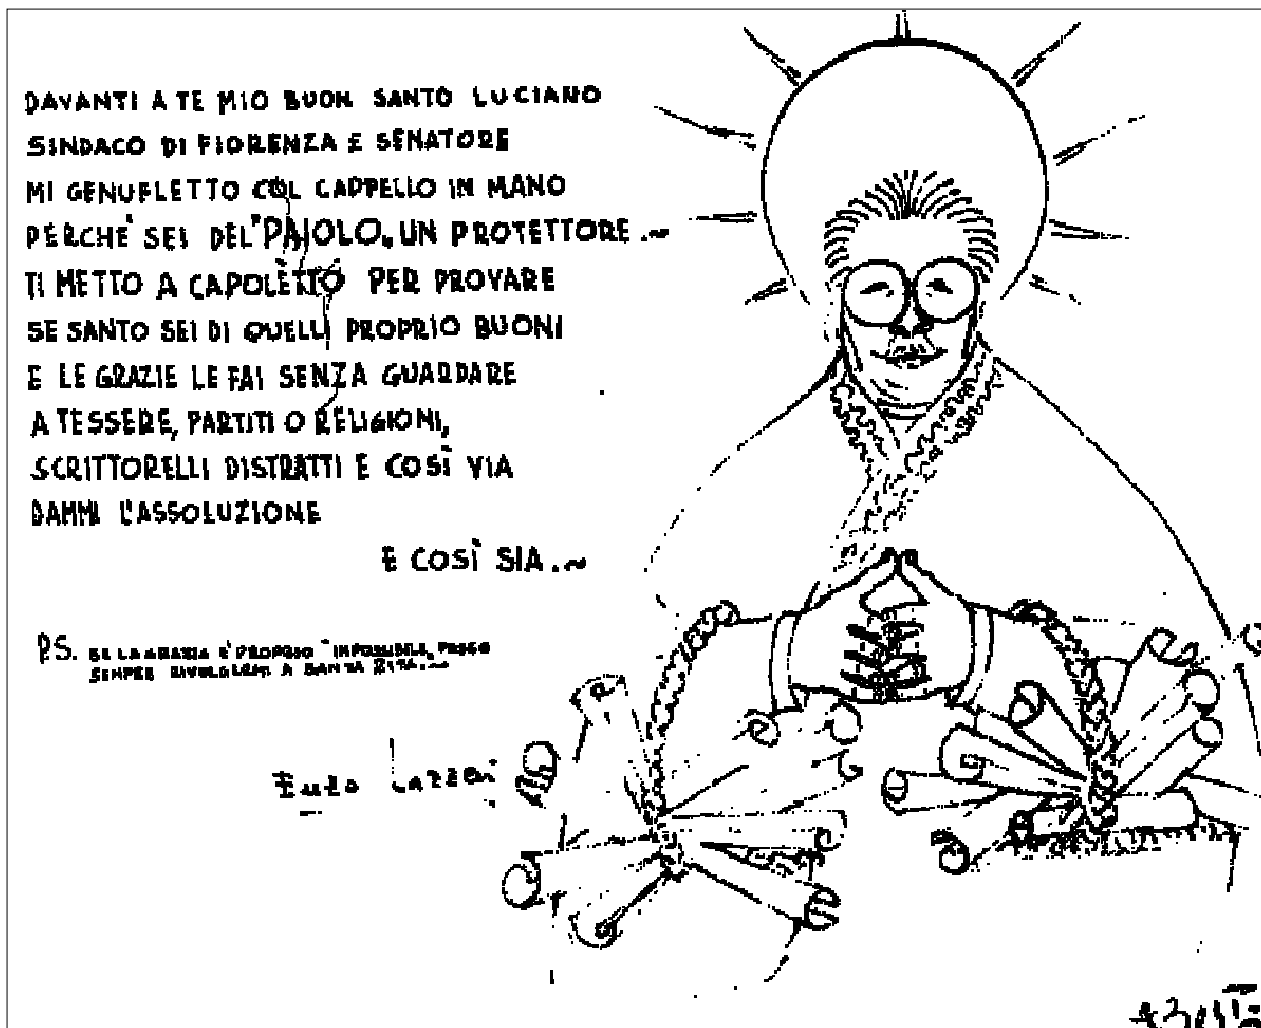 DAVANTI A TE MIO BUON SANTO LUCIANO
SINDACO DI FIORENZA E SENATORE
MI GENUFLETTO COL CAPPELLO IN MANO
PERCHE' SEI DEL "PAIOLO" UN PROTETTORE.~
TI METTO A CAPOLETTO PER PROVARE
SE SANTO SEI DI QUELLI PROPRIO BUONI
E LE GRAZIE LE FAI SENZA GUARDARE
A TESSERE, PARTITI O RELIGIONI,
SCRITTORELLI DISTRATTI E COSÌ VIA
DAMMI L'ASSOLUZIONE
E COSÌ SIA.~
P.S. SE LA GRAZIA E' PROPRIO IMPOSSIBILE, POSSO
SEMPRE RIVOLGERMI A SANTA RITA